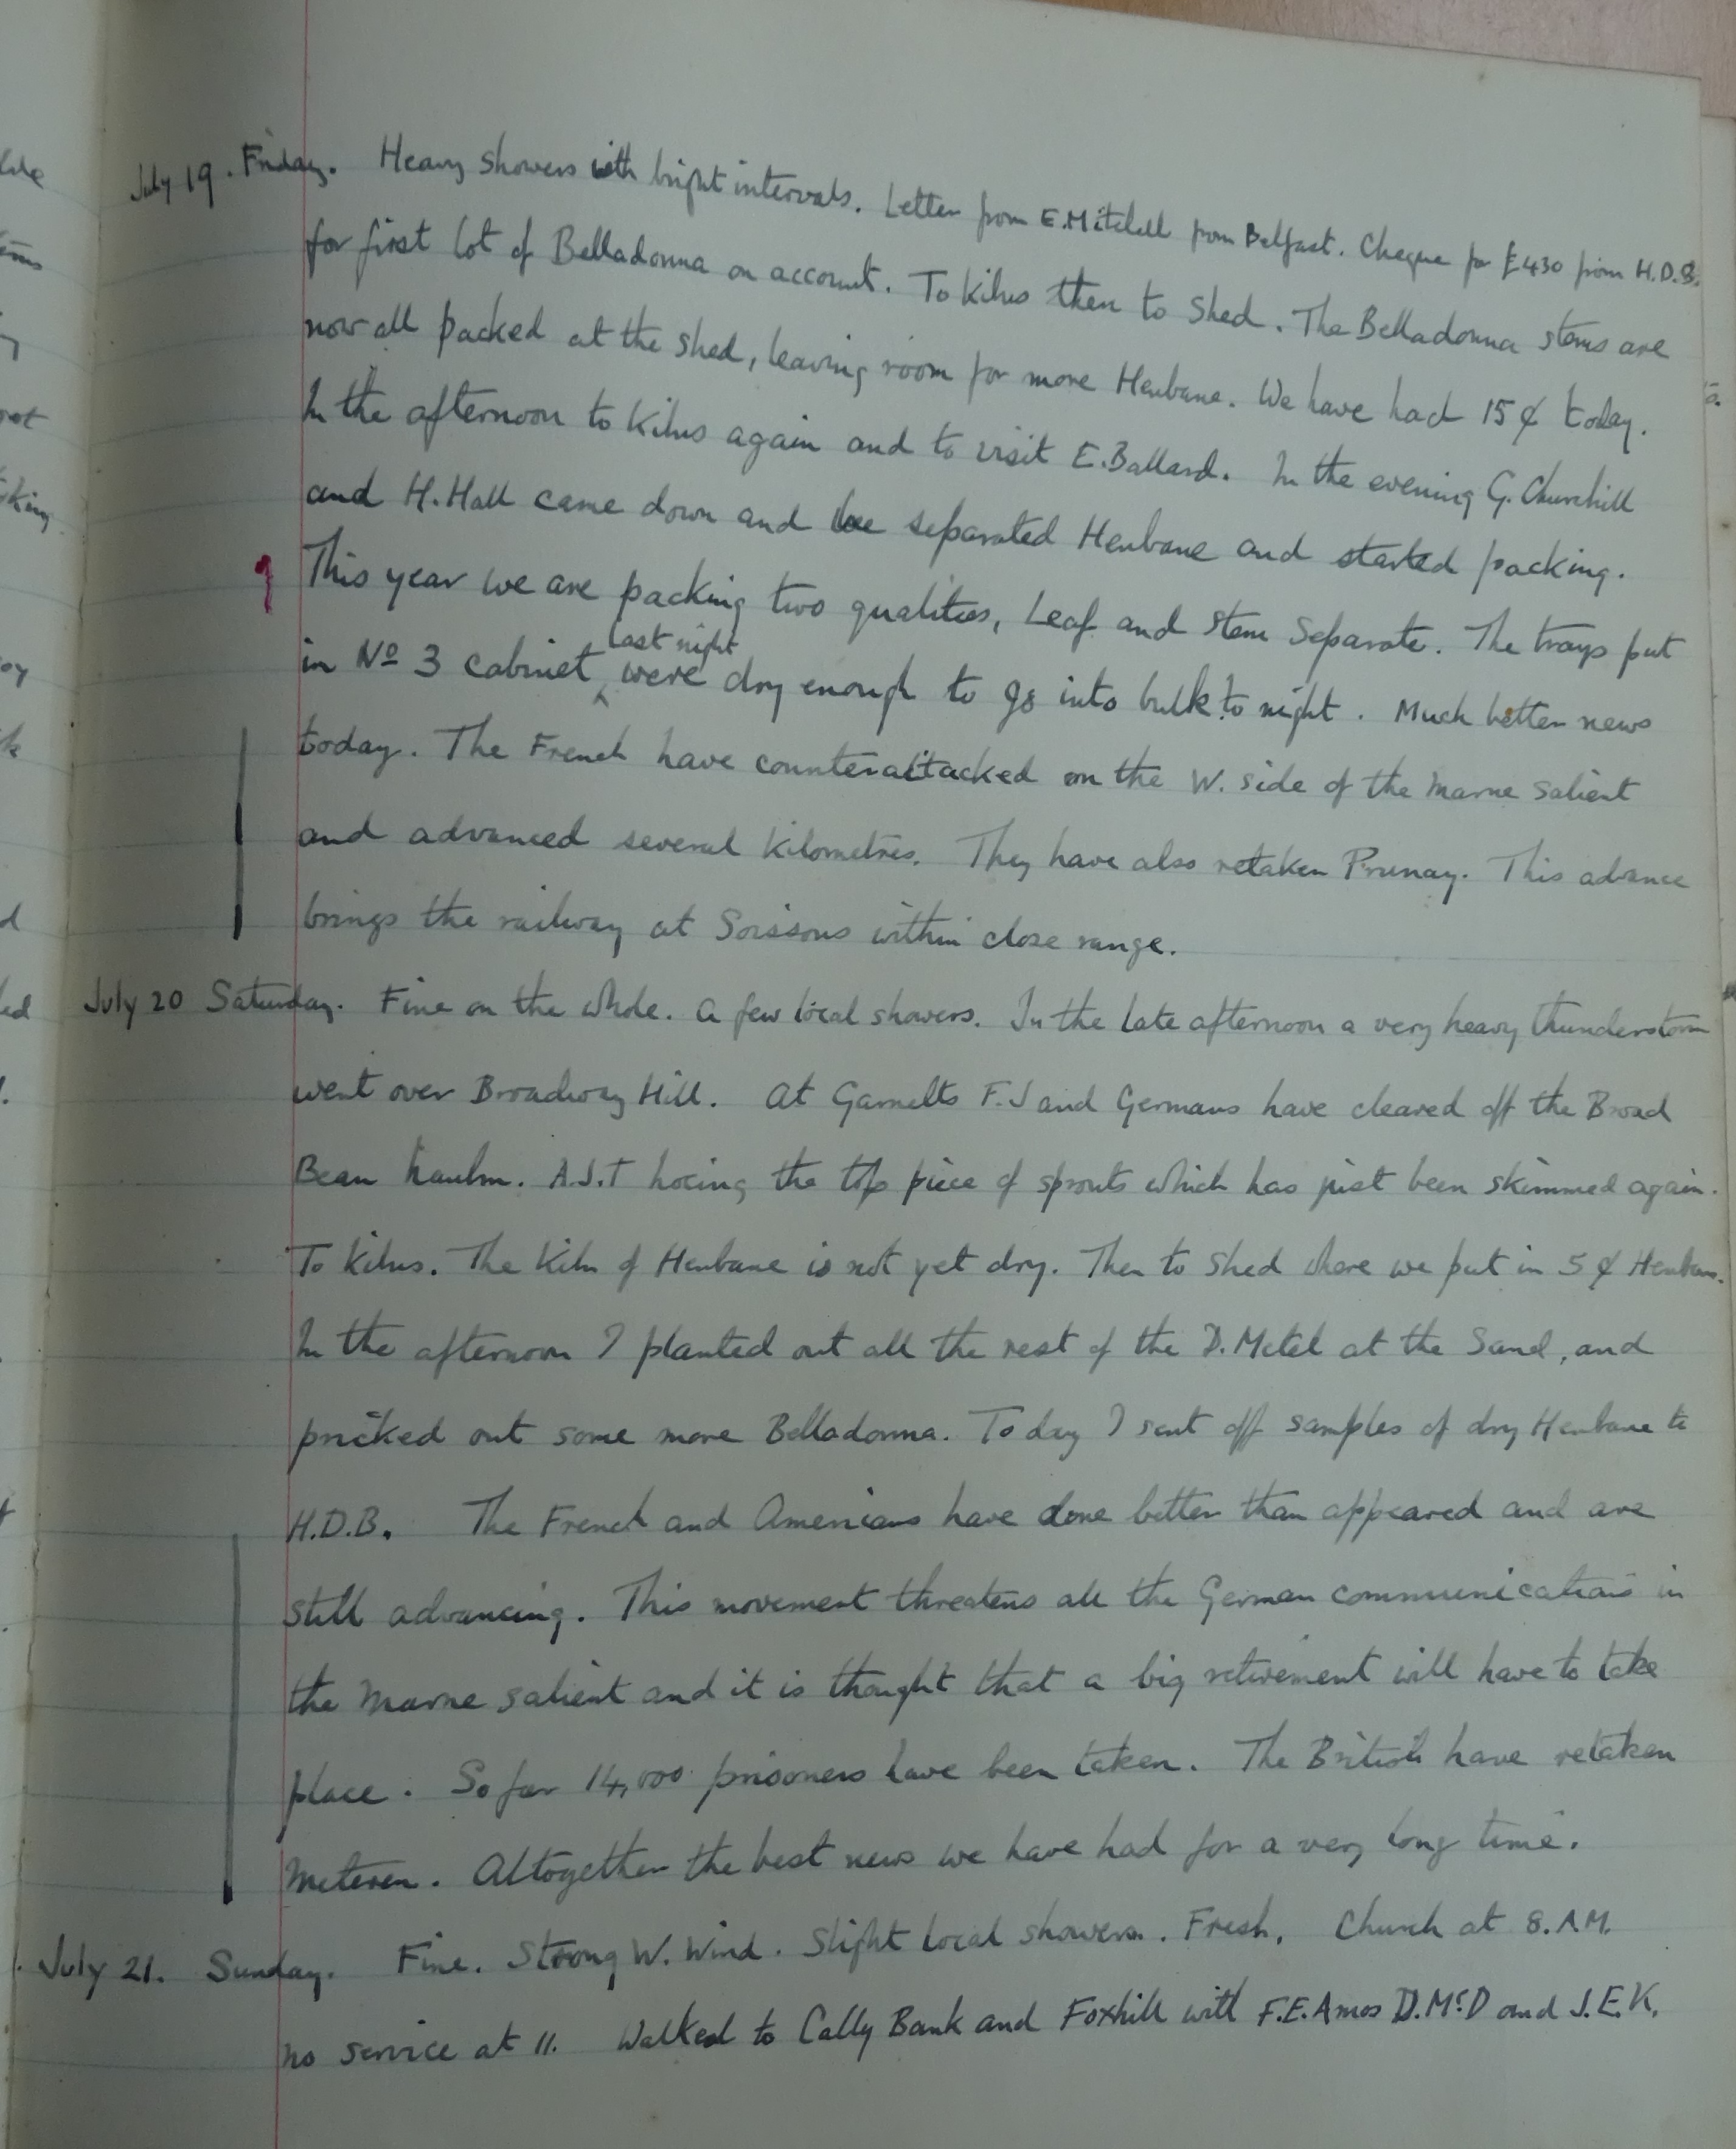 July 19. Friday. Heavy showers with bright intervals. Letter from E.Mitchell from Belfast. Cheque for £430 from H.D.B.
for first lot of Belladonna on account. To Kilns then to Shed. The Belladonna stems are
now all packed at the shed, leaving room for more Henbane. We have had 15 ₵ today.
In the afternoon to Kilns again and to visit E.Ballard. In the evening G. Churchill
and H. Hall came down and we separated Henbane and started packing.
This year we are packing two qualities, Leaf and stem Separate. The trays put
last night
in No 3 cabinet ^ were dry enough to go into bulk to night. Much better news
today. The French have counterattacked on the W. side of the Marne Salient
and advanced several Kilometres. They have also retaken Prunay. This advance
brings the railway at Soissons within close range.
July 20 Saturday. Fine on the whole. A few local showers. In the late afternoon a very heavy thunderstorm
went over Broadway Hill. At F.J and Germans have cleared off the Broad
Bean haulm. A.J.T hoeing the top piece of sprouts which has just been skimmed again.
To Kilns. The Kiln of Henbane is not yet dry. Then to Shed where we put in 5 ₵ Henbane.
In the afternoon I planted out all the rest of the D. Metel at the Sand, and
pricked out some more Belladonna. Today I sent off samples of dry Henbane to
H.D.B. The French and Americans have done better than appeared and are
still advancing. This movement threatens all the German communications in
the Marne salient and it is thought that a big retirement will have to take
place. So far 14,000 prisoners have been taken. The British have retaken
Meteren. Altogether the best news we have had for a very long time.
July 21. Sunday. Fine. Strong W. Wind. Slight local showers. Fresh. Church at 8. A.M.
no service at 11. Walked to Cally Bank and Foxhill with F.E. Amos D.McD and J.E.K.